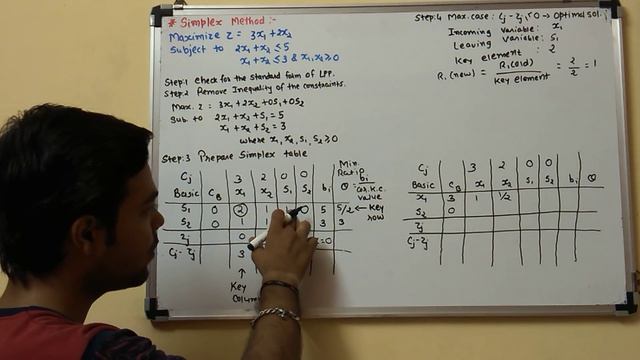 * Simplex Method :-
Maximize Z = 3x₁ + 2x₂
Subject to 2x₁ + x₂ ≤ 5
x₁ + x₂ ≤ 3 & x₁, x₂ ≥ 0
Step:1 Check for the standard form of LPP.
Step:2 Remove Inequality of the constraints.
Max. Z = 3x₁ + 2x₂ + 0S₁ + 0S₂
Sub. to 2x₁ + x₂ + S₁ = 5
x₁ + x₂ + S₂ = 3
where x₁, x₂, S₁, S₂ ≥ 0
Step:3 Prepare Simplex table
Cj 3 2 0 0 Min. Ratio
Basic CB x₁ x₂ S₁ S₂ bi θ = bi / cor. K.C. value
S₁ 0 2 1 1 0 5 5/2 ← Key row
S₂ 0 1 3 3
Zj 0 =0
Cj - Zj 3
↑
Key
Column
Step:4 Max. case: Cj - Zj ≤ 0 → Optimal sol.
Incoming variable: x₁
Leaving variable: S₁
Key element: 2
R₁ (new) = R₁ (old) / Key element = 2/2 = 1
Cj 3 2 0 0
Basic CB x₁ x₂ S₁ S₂ bi θ
x₁ 3 1 1/2
S₂ 0
Zj
Cj - Zj